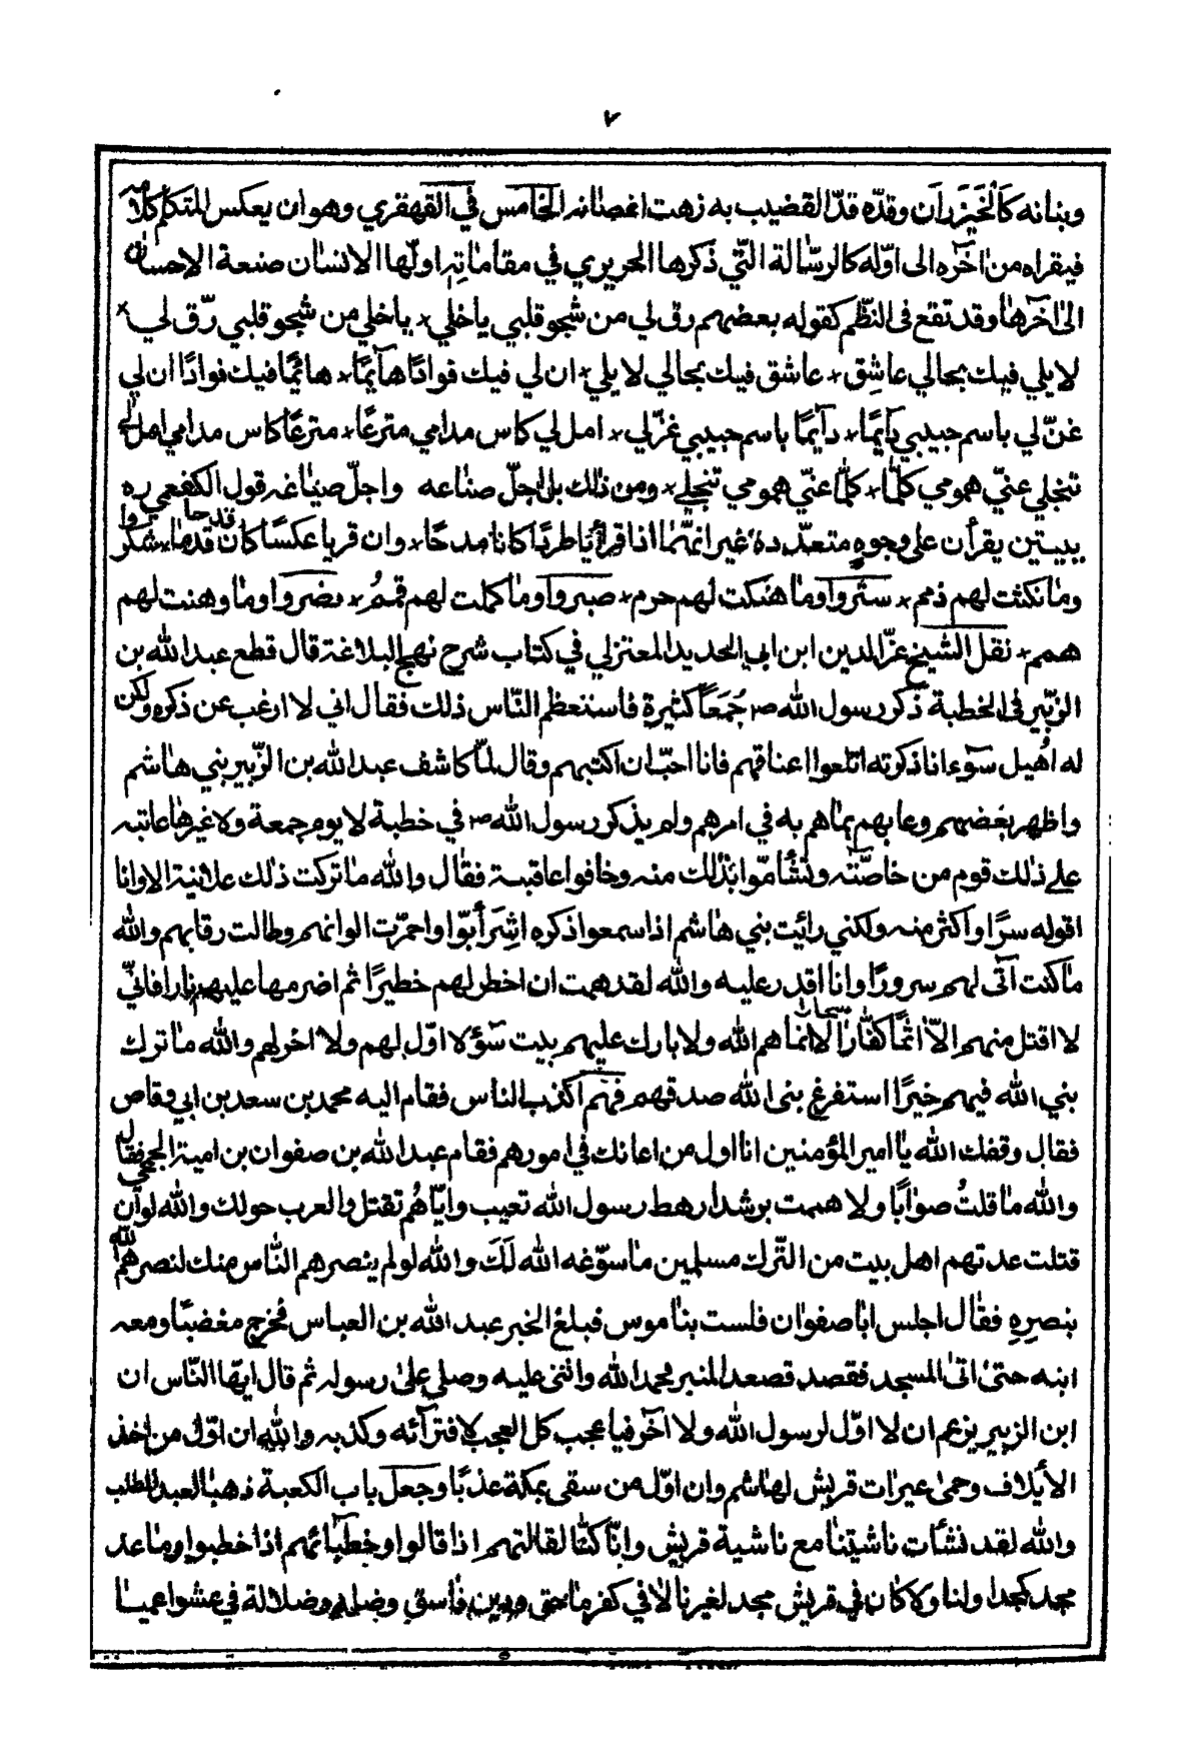 ٧
وبنانه كَالْخَيْزَرَان وقدّه قدّ القضيب به زهت اغصانه الخامس في القهقري وهو ان يعكس المتكلم كلامه
فيقراه من اخره الى اوّله كالرسّالة التّي ذكرها الحريري في مقاماته اولها الانسان صنعة الاحسان
الى اخرها وقد تقع فى النّظم كقوله بعضهم رق لي من شجو قلبي ياخلي × ياخلي من شجو قلبي رّق لي ×
لا يلي فيك بحالي عاشِق × عاشق فيك بحالي لا يلي × ان لي فيك فوادًا هآيمًا × هائمًا فيك فوادًا ان لي
غنّ لي باسم حبيبي دآيمًا × دآيمًا باسم حبيبي غنّ لي × امل لي كاس مدامي مترعًا × مترعًا كاس مدامي امل لي
تنجلي عنّي همومي كلّما × كلّما عنّي همومي تنجلي × ومن ذلك بل اجلّ صناعه واجلّ صياغه قول الكفعمي ره
بيتين يقرأن على وجوهٍ متعدّده غير انهّما اذا قرأيا طردًا كانا مدحًا × وان قريا عكسًا كان قدحا × شكروا
وما نكثت لهم ذمم × ستروا وما هتكت لهم حرم × صبروا وما كملت لهم قممُ × نضروا وما وهنت لهم
همم × نقل الشيخ عزّ الدين ابن ابي الحديد المعتزلي في كتاب شرح نهج البلاغة قال قطع عبد الله بن
الزبّير فى الخطبة ذكر رسول الله ص جُمَعاً كثيرة فاستعظم النّاس ذلك فقال اني لا ارغب عن ذكره ولكن
له اُهيل سوٓء اذا ذكرته اتلعوا اعناقهم فانا احبّ ان اكتبهم وقال لمّا كاشف عبد الله بن الزّبير بني هاشم
واظهر بغضهم وعابهم بما هم به في امرهم ولم يذكر رسول الله ص في خطبة لا يوم جمعة ولا غيرها عاتبه
على ذلك قوم من خاصّته وتشأمّوا بذلك منه وخافوا عاقبة فقال والله ما تركت ذلك علانية الا وانا
اقوله سرًا واكثر منه ولكني رائيت بني هاشم اذا سمعوا ذكره اشِرَأبّوا واحمرّت الوانهم وطالت رقابهم والله
ما كنت آتى لهم سرورًا وانا اقدر عليه والله لقد هممت ان اخطر لهم خطيرًا ثم اضرمها عليهم نارا فانيّ
لا اقتل منهم الاّ اثمًا كفّارًا سحارا لا انماهم الله ولا بارك عليهم بيت سوٓء لا اوّل لهم ولا اخر لهم والله ما ترك
بني الله فيهم خيرًا استفرغ بنى الله صدقهم فهم اكذب الناس فقام اليه محمد بن سعد بن ابي وقاص
فقال وقفك الله يا امير المؤمنين انا اول من اعانك في امورهم فقام عبد الله بن صفوان بن امية الجمحي فقال
والله ما قلتُ صوابًا ولا هممت برشد ارهط رسول الله تعيب وايّاهُم تقتل والعرب حولك والله لو ان
قتلت عدتهم اهل بيت من التّرك مسلمين ما سوّغه الله لَكَ والله لو لم ينصرهم النّاس منك لنصرهم الله
بنصرِهِ فقال اجلس ابا صفوان فلست بناموس فبلغ الخبر عبد الله بن العباس فخرج مغضبًا ومعه
ابنه حتىّ اتى المسجد فقصد قصعد المنبر فحمد الله واثنى عليه وصلى على رسوله ثم قال ايّها النّاس ان
ابن الزبير يزعم ان لا اوّل لرسول الله ولا آخر فيا عجب كل العجب لافترآئه وكذبه والله ان اوّل من اخذ
الأيلاف وحمى عيرات قريش لهاشم وان اوّل من سقى بمكة عذبًا وجعل باب الكعبة ذهبا لعبد المطلب
والله لقد نشأت ناشيتنا مع ناشية قريش وانّا كنّا لقالتهم اذا قالوا وخطبائهم اذا خطبوا وما عد
مجد كمجد اولنا ولا كان في قريش مجد لغيرنا الا في كفر ماحق ودين فاسق وضله وضلالة في عشوا عميا